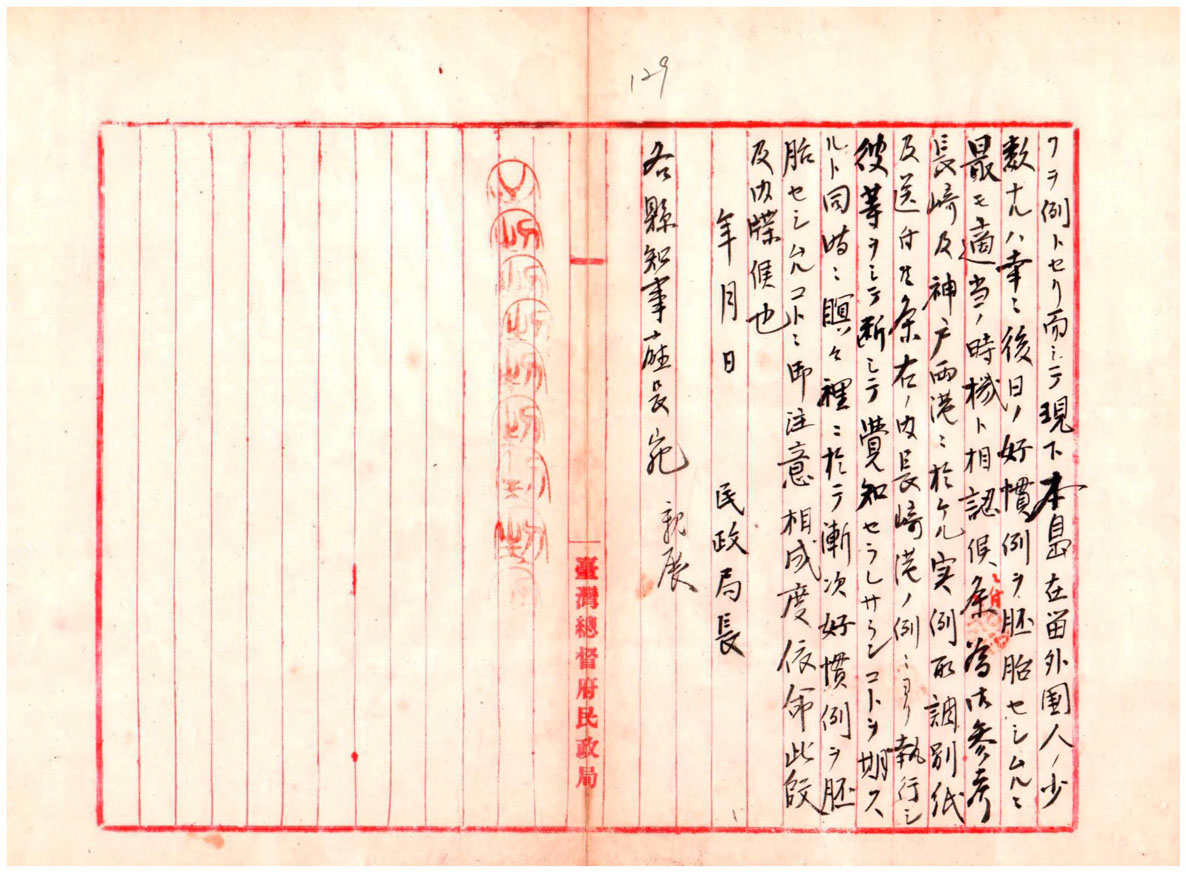 129
フヲ例トセリ而シテ現下本島在留外国人ノ少
数ナルハ幸ニ後日ノ好慣例ヲ胚胎セシムルニ
最モ適当ノ時機ト相認候条為御参考
長崎及神戸両港ニ於ケル実例取調別紙
及送付候条右ノ内長崎港ノ例ニヨリ執行シ
彼等ヲシテ断シテ覚知セラレサランコトヲ期ス
ルト同時ニ瞑々裡ニ於テ漸次好慣例ヲ胚
胎セシムルコトニ御注意相成度依命此段
及内牒候也
年月日
民政局長
各縣知事庁長宛 親展
臺灣總督府民政局